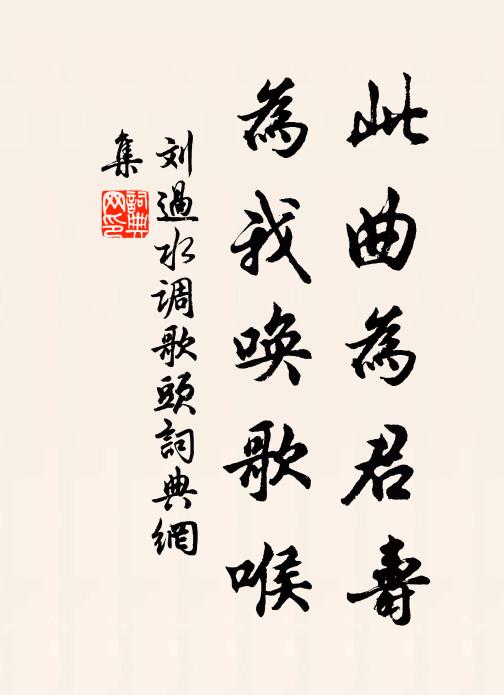 此曲為君壽
為我喚歌喉
刘過水调歌頭詞典網
集
詞典网印